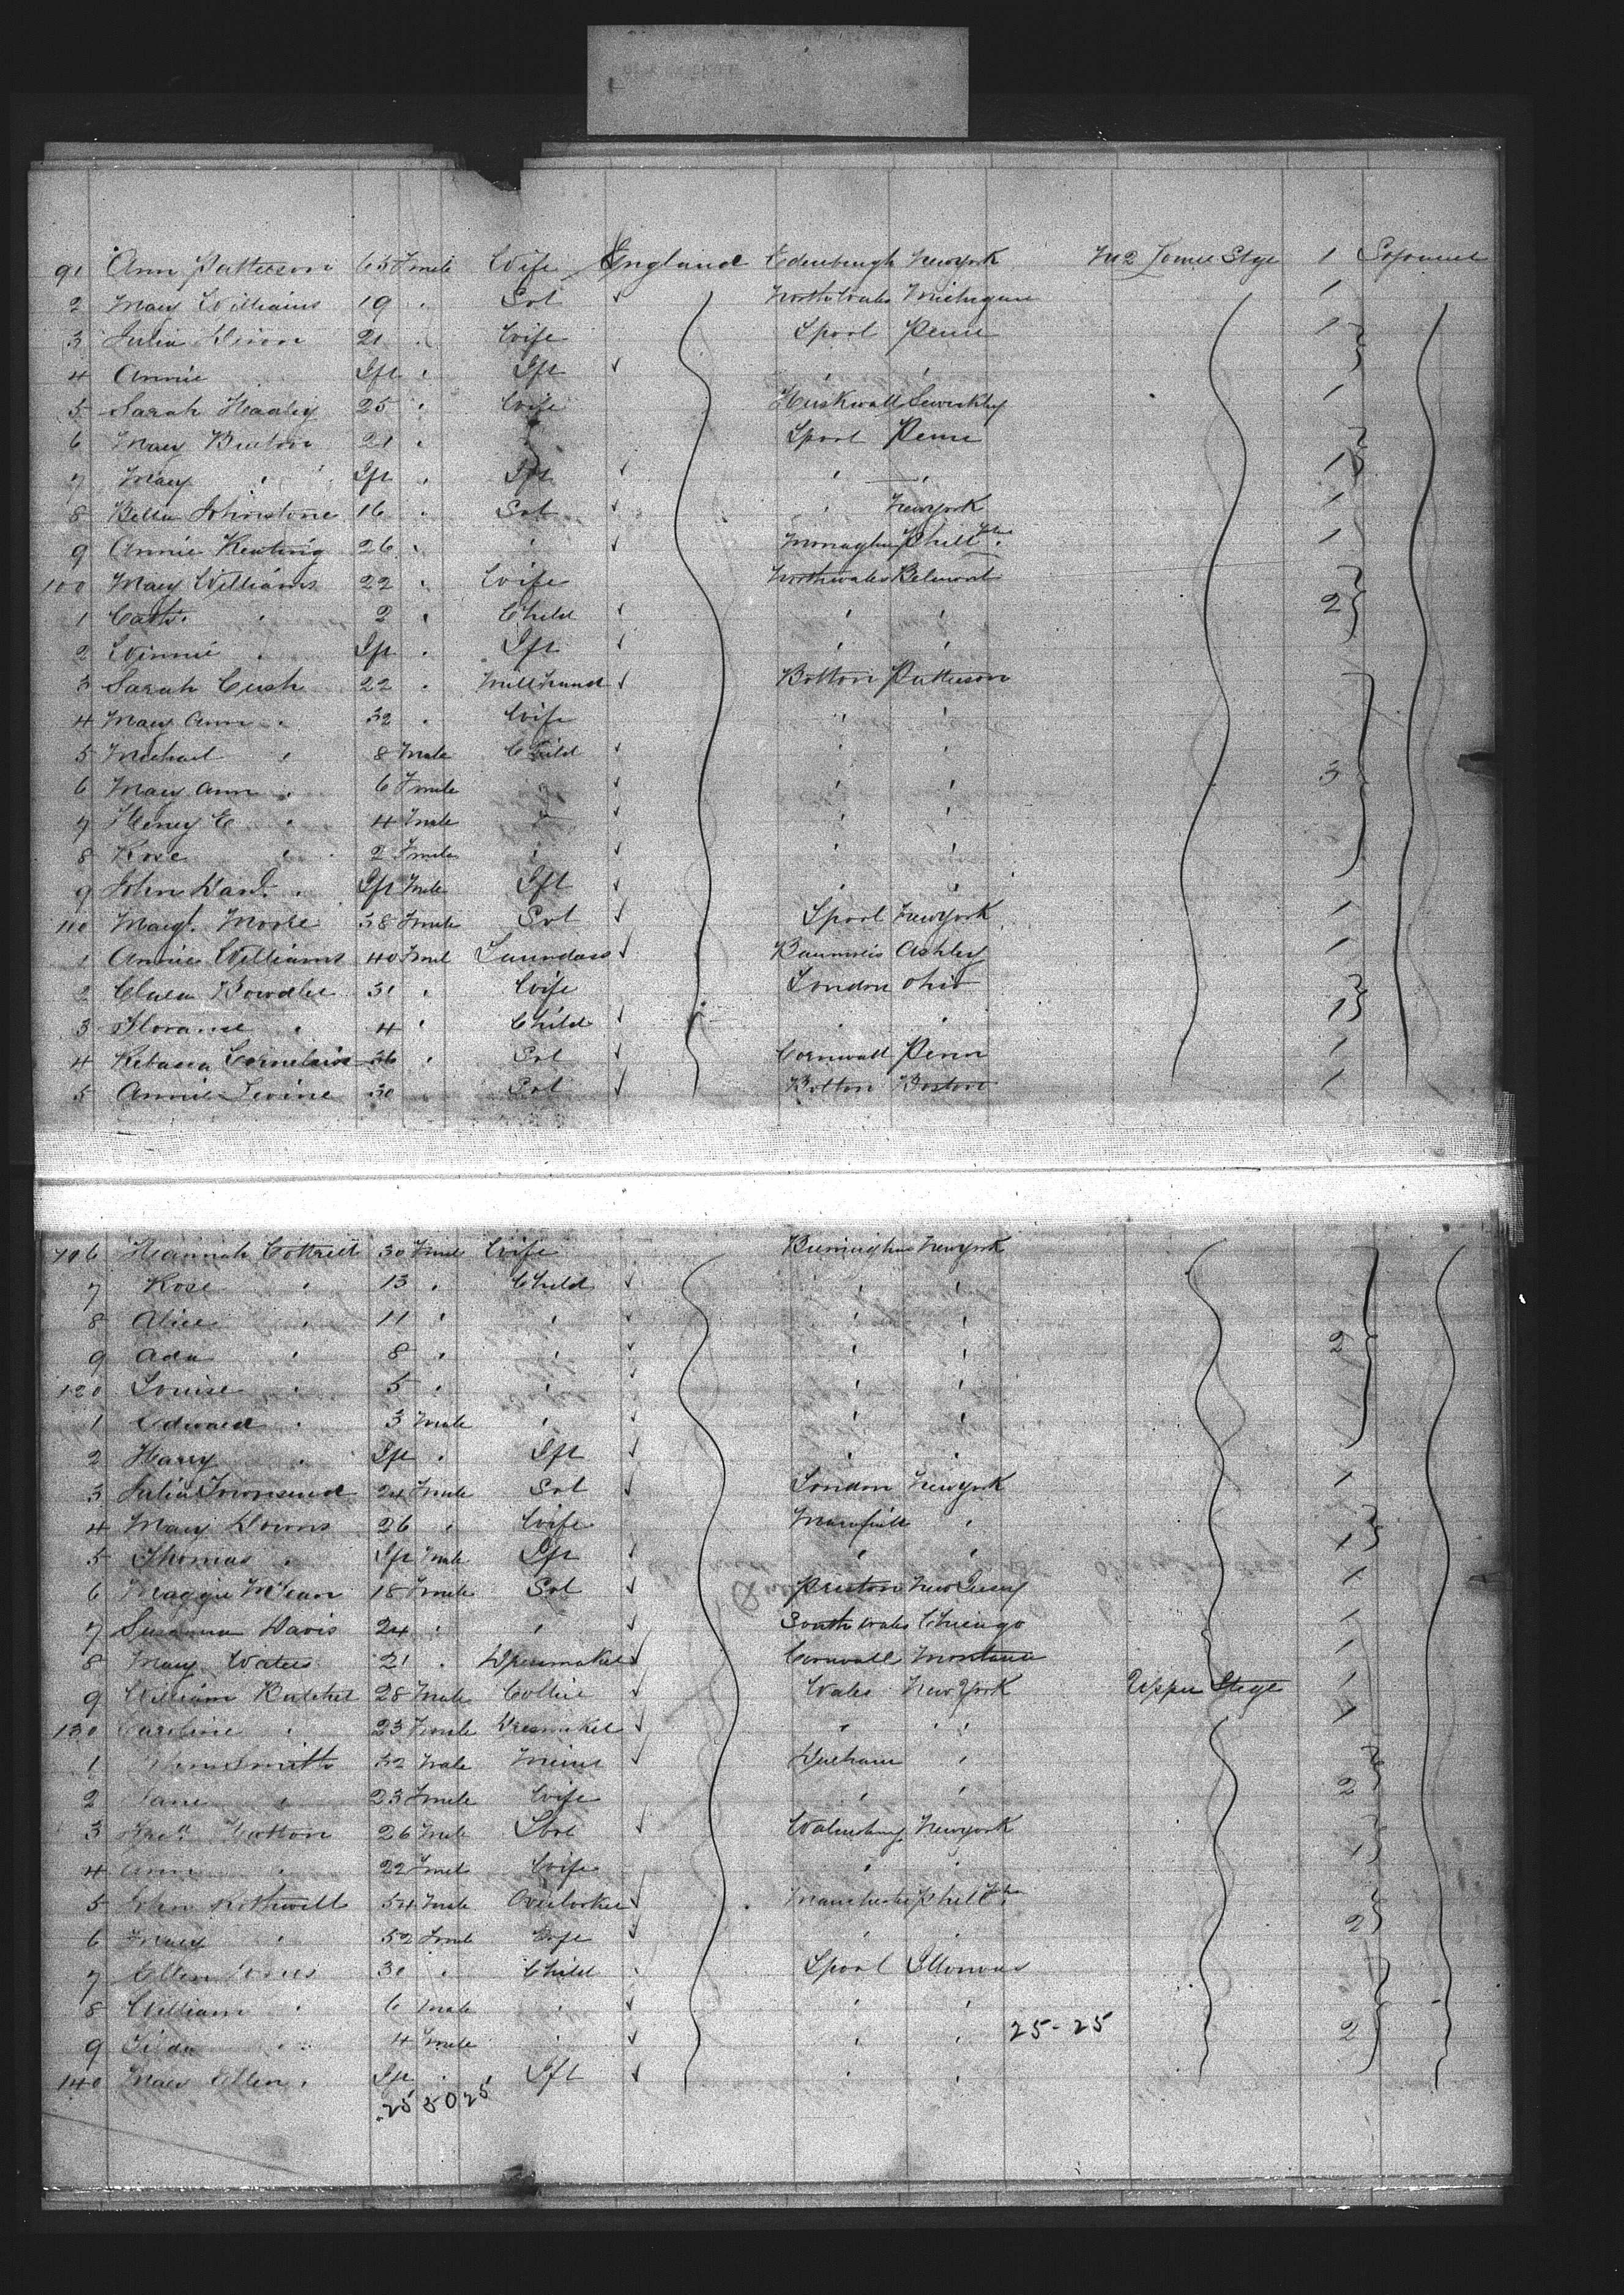 91 Ann Patterson 65 Fmale Wife England Edenburgh Newyork No 2 Lower Stge 1 Sojourner
2 Mary Williams 19 " Svt ✓ North Wales Michigan 1
3 Julia Dixon 21 " Wife Lpool Penn 1
4 Annie " Ift " Ift ✓ " "
5 Sarah Heatley 25 " Wife Sewickley 1
6 Mary Bruton 21 " " Lpool Penn
7 Mary " " Ift " Ift ✓ " " 1
8 Bella Johnstone 16 " Svt ✓ " Newyork 1
9 Annie Keating 26 " " ✓ Monaghan Phill 1
100 Mary Williams 22 " Wife Northwales Belmont
1 Cath. " 2 " Child ✓ " " 2
2 Winnie " Ift " Ift ✓ " "
3 Sarah Cush 22 " Millhand ✓ Bolton Patterson
4 Mary Ann " 32 " Wife " "
5 Michael " 8 Male Child ✓ " "
6 Mary Ann " 6 Fmale " ✓ " " 3
7 Henry E " 4 Male " ✓ " "
8 Rose " 2 Fmale " ✓ " "
9 John " Ift Male Ift ✓ " "
110 Margt. Moore 38 Fmale Svt ✓ Lpool Newyork 1
1 Annie Williams 40 Fmal Laundress ✓ Ashley 1
2 Clara Bowdler 31 " Wife London Ohio
3 Florance " 4 " Child ✓ " " 1
4 Rebecca Cornelius 36 " Svt ✓ Cornwall Penn 1
5 Annie Levine 30 " Svt ✓ Bolton Boston 1
116 Hannah Cottrell 30 Fmale Wife Birmingham Newyork
7 Rose " 13 " Child ✓ " "
8 Alice " 11 " " ✓ " "
9 Ada " 8 " " ✓ " " 2
120 Louise " 5 " " ✓ " "
1 Edward " 3 Male " ✓ " "
2 Harry " Ift " Ift ✓ " "
3 Julia Townsend 24 Fmale Svt ✓ London Newyork 1
4 Mary Downs 26 " Wife "
5 Thomas " Ift Male Ift ✓ " " 1
6 Maggie McLean 18 Fmale Svt ✓ Preston New Jersey 1
7 Susanna Davis 24 " " ✓ South Wales Chicago 1
8 Mary Waters 21 " Dressmaker ✓ Cornwall Montana 1
9 William Butcher 28 Male Collier ✓ Wales New York Upper Stege 1
130 Caroline " 23 Fmale Dresmaker ✓ " " 1
1 Smith 32 Male Miner ✓ Durham "
2 Jane " 23 Fmale Wife " " 2
3 Cotton 26 Male ✓ Newyork
4 Ann " 22 Fmal Wife " " 1
5 John Rothwell 54 Male Overlooker ✓ Manchester Phil
6 Mary " 52 Fmal Wife ✓ " " 2
7 Ellen Jones 30 " Child Lpool Illonois
8 William " 6 Male " ✓ " "
9 Tilda " 4 Fmale " ✓ " " 25-25 2
140 Mary Ellen " Ift " Ift ✓ " "
25 50 25